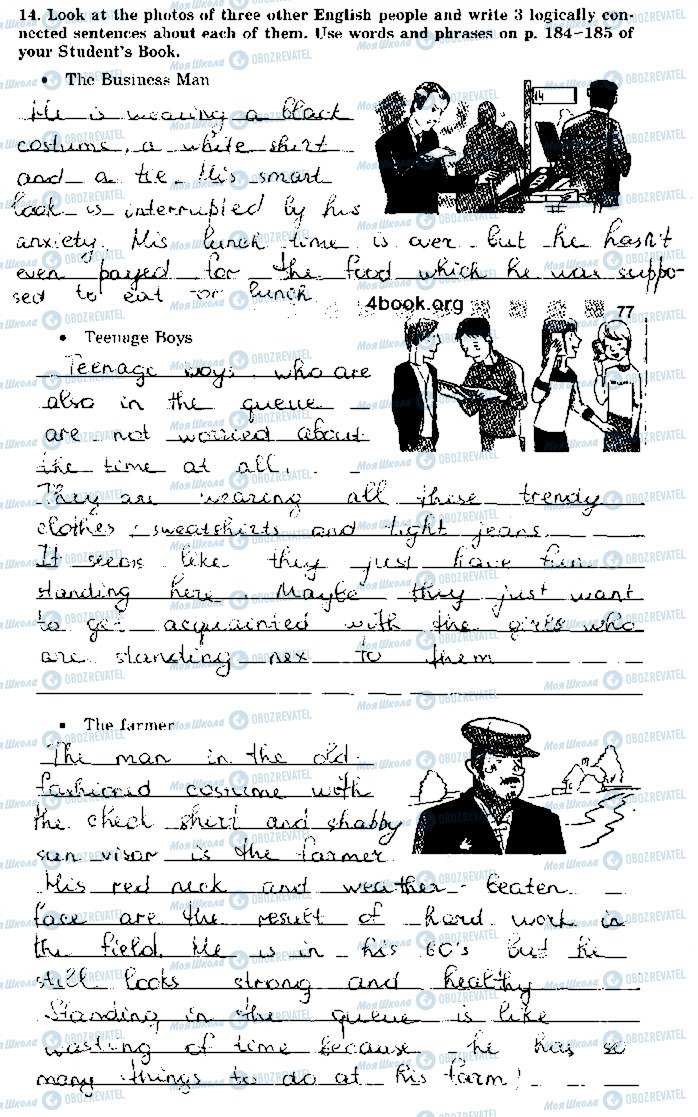 14. Look at the photos of three other English people and write 3 logically con-
nected sentences about each of them. Use words and phrases on p. 184–185 of
your Student's Book.
• The Business Man
He is wearing a black
costume, a white shirt
and a tie. His smart
look is interrupted by his
anxiety. His lunch time is over but he hasn't
even payed for the food which he was suppo-
sed to eat for lunch
14
4book.org
77
• Teenage Boys
Teenage woys, who are
also in the queue
are not worried about
the time at all.
They are wearing all these trendy
clothes: sweatshirts and tight jeans.
It seems like they just have fun
standing here. Maybe they just want
to get acquainted with the girls who
are standing nex to them
• The farmer
The man in the old
fashioned costume with
the check shirt and shabby
sun visor is the farmer.
His red neck and weather-beaten
face are the result of hard work in
the field. He is in his 60's but he
still looks strong and healthy
Standing in the queue is like
wasting of time because he has so
many things to do at his farm!
Моя Школа OBOZREVATEL